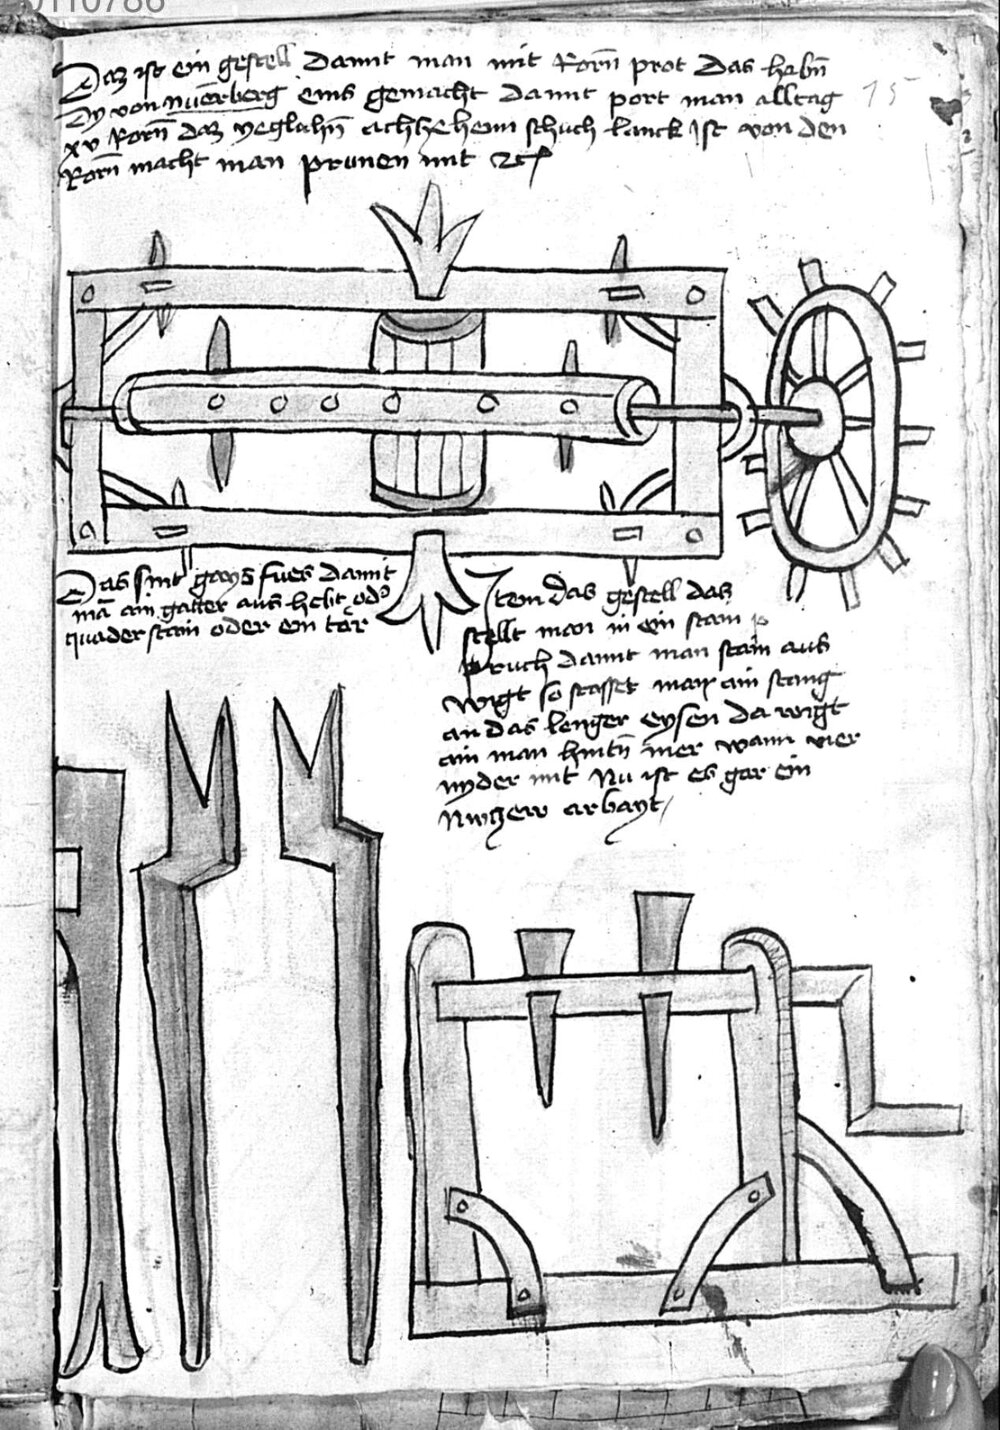 0110786
Daz ist ein gestell damit man mit Rorn port das habn
dy von nuerberg eins gemacht damit port man alltag
xv Rorn daz yeglichs achtzehenn schuch lanck ist von den
Rorn macht man prunen mit etc
15
Das sint gays fues damit
ma ain gatter aus hebt od
quader stain oder ein tor
Item das gestell das
stellt man in ein stain
pruch damit man stain aus
wigt so stosset man ain stang
an das lenger eysen da wigt
ain man hintn mer wann vier
nyder mit Nu ist es gar ein
arbayt